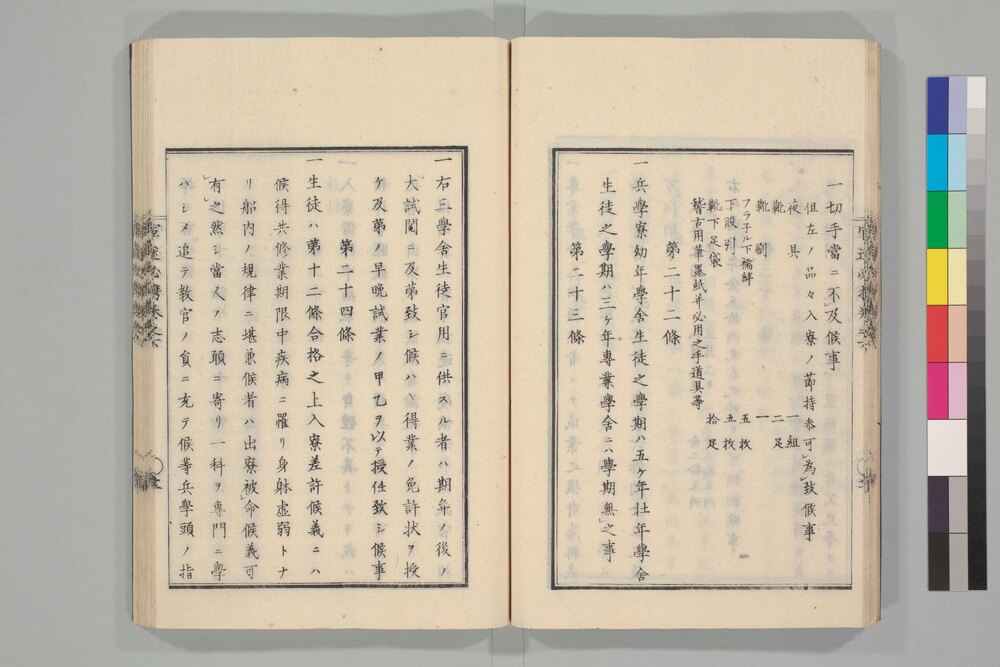 一切手當ニ不及候事
但左ノ品々入寮ノ節持参可為致候事
夜具 一組
靴 二足
靴刷 一
フラ子ル下襦袢 五枚
下股引 五枚
靴下足袋 拾足
稽古用筆墨紙并必用之手道具等
第二十二條
一兵學寮幼年學舎生徒之學期ハ五ケ年壯年學舎
生徒之學期ハ三ケ年專業學舎ニハ學期無之事
第二十三條
一右三學舎生徒官用ニ供スル者ハ期年ノ後ノ
大試閲ニ及第致シ候ハヽ得業ノ免許状ヲ授
ケ及第ノ早晩試業ノ甲乙ヲ以テ授任致シ候事
第二十四條
一生徒ハ第十二條合格之上入寮差許候義ニハ
候得共修業期限中疾病ニ罹リ身躰虚弱トナ
リ船内ノ規律ニ堪兼候者ハ出寮被命候義可
有之然シ當人ノ志願ニ寄リ一科ヲ專門ニ學
ハシメ追テ教官ノ員ニ充テ候等兵學頭ノ指